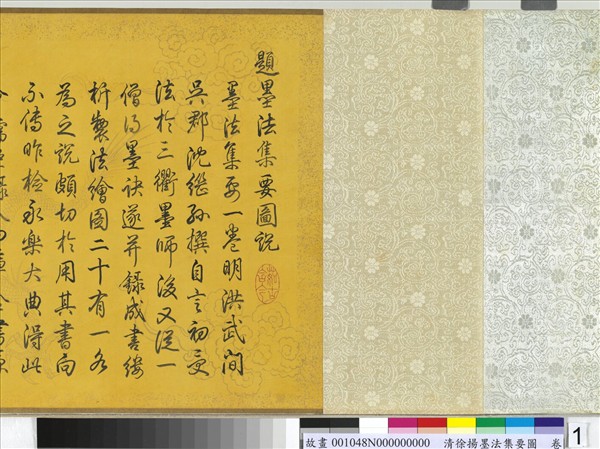 題墨法集要圖說
墨法集要一卷明洪武間
吳郡沈繼孫撰自言初受
法於三衢墨師後又從一
僧得墨訣遂并錄成書縷
析製法繪圖二十有一各
為之說頗切於用其書向
不傳昨檢永樂大典得此
故畫 001048N000000000 清徐揚墨法集要圖 卷
1